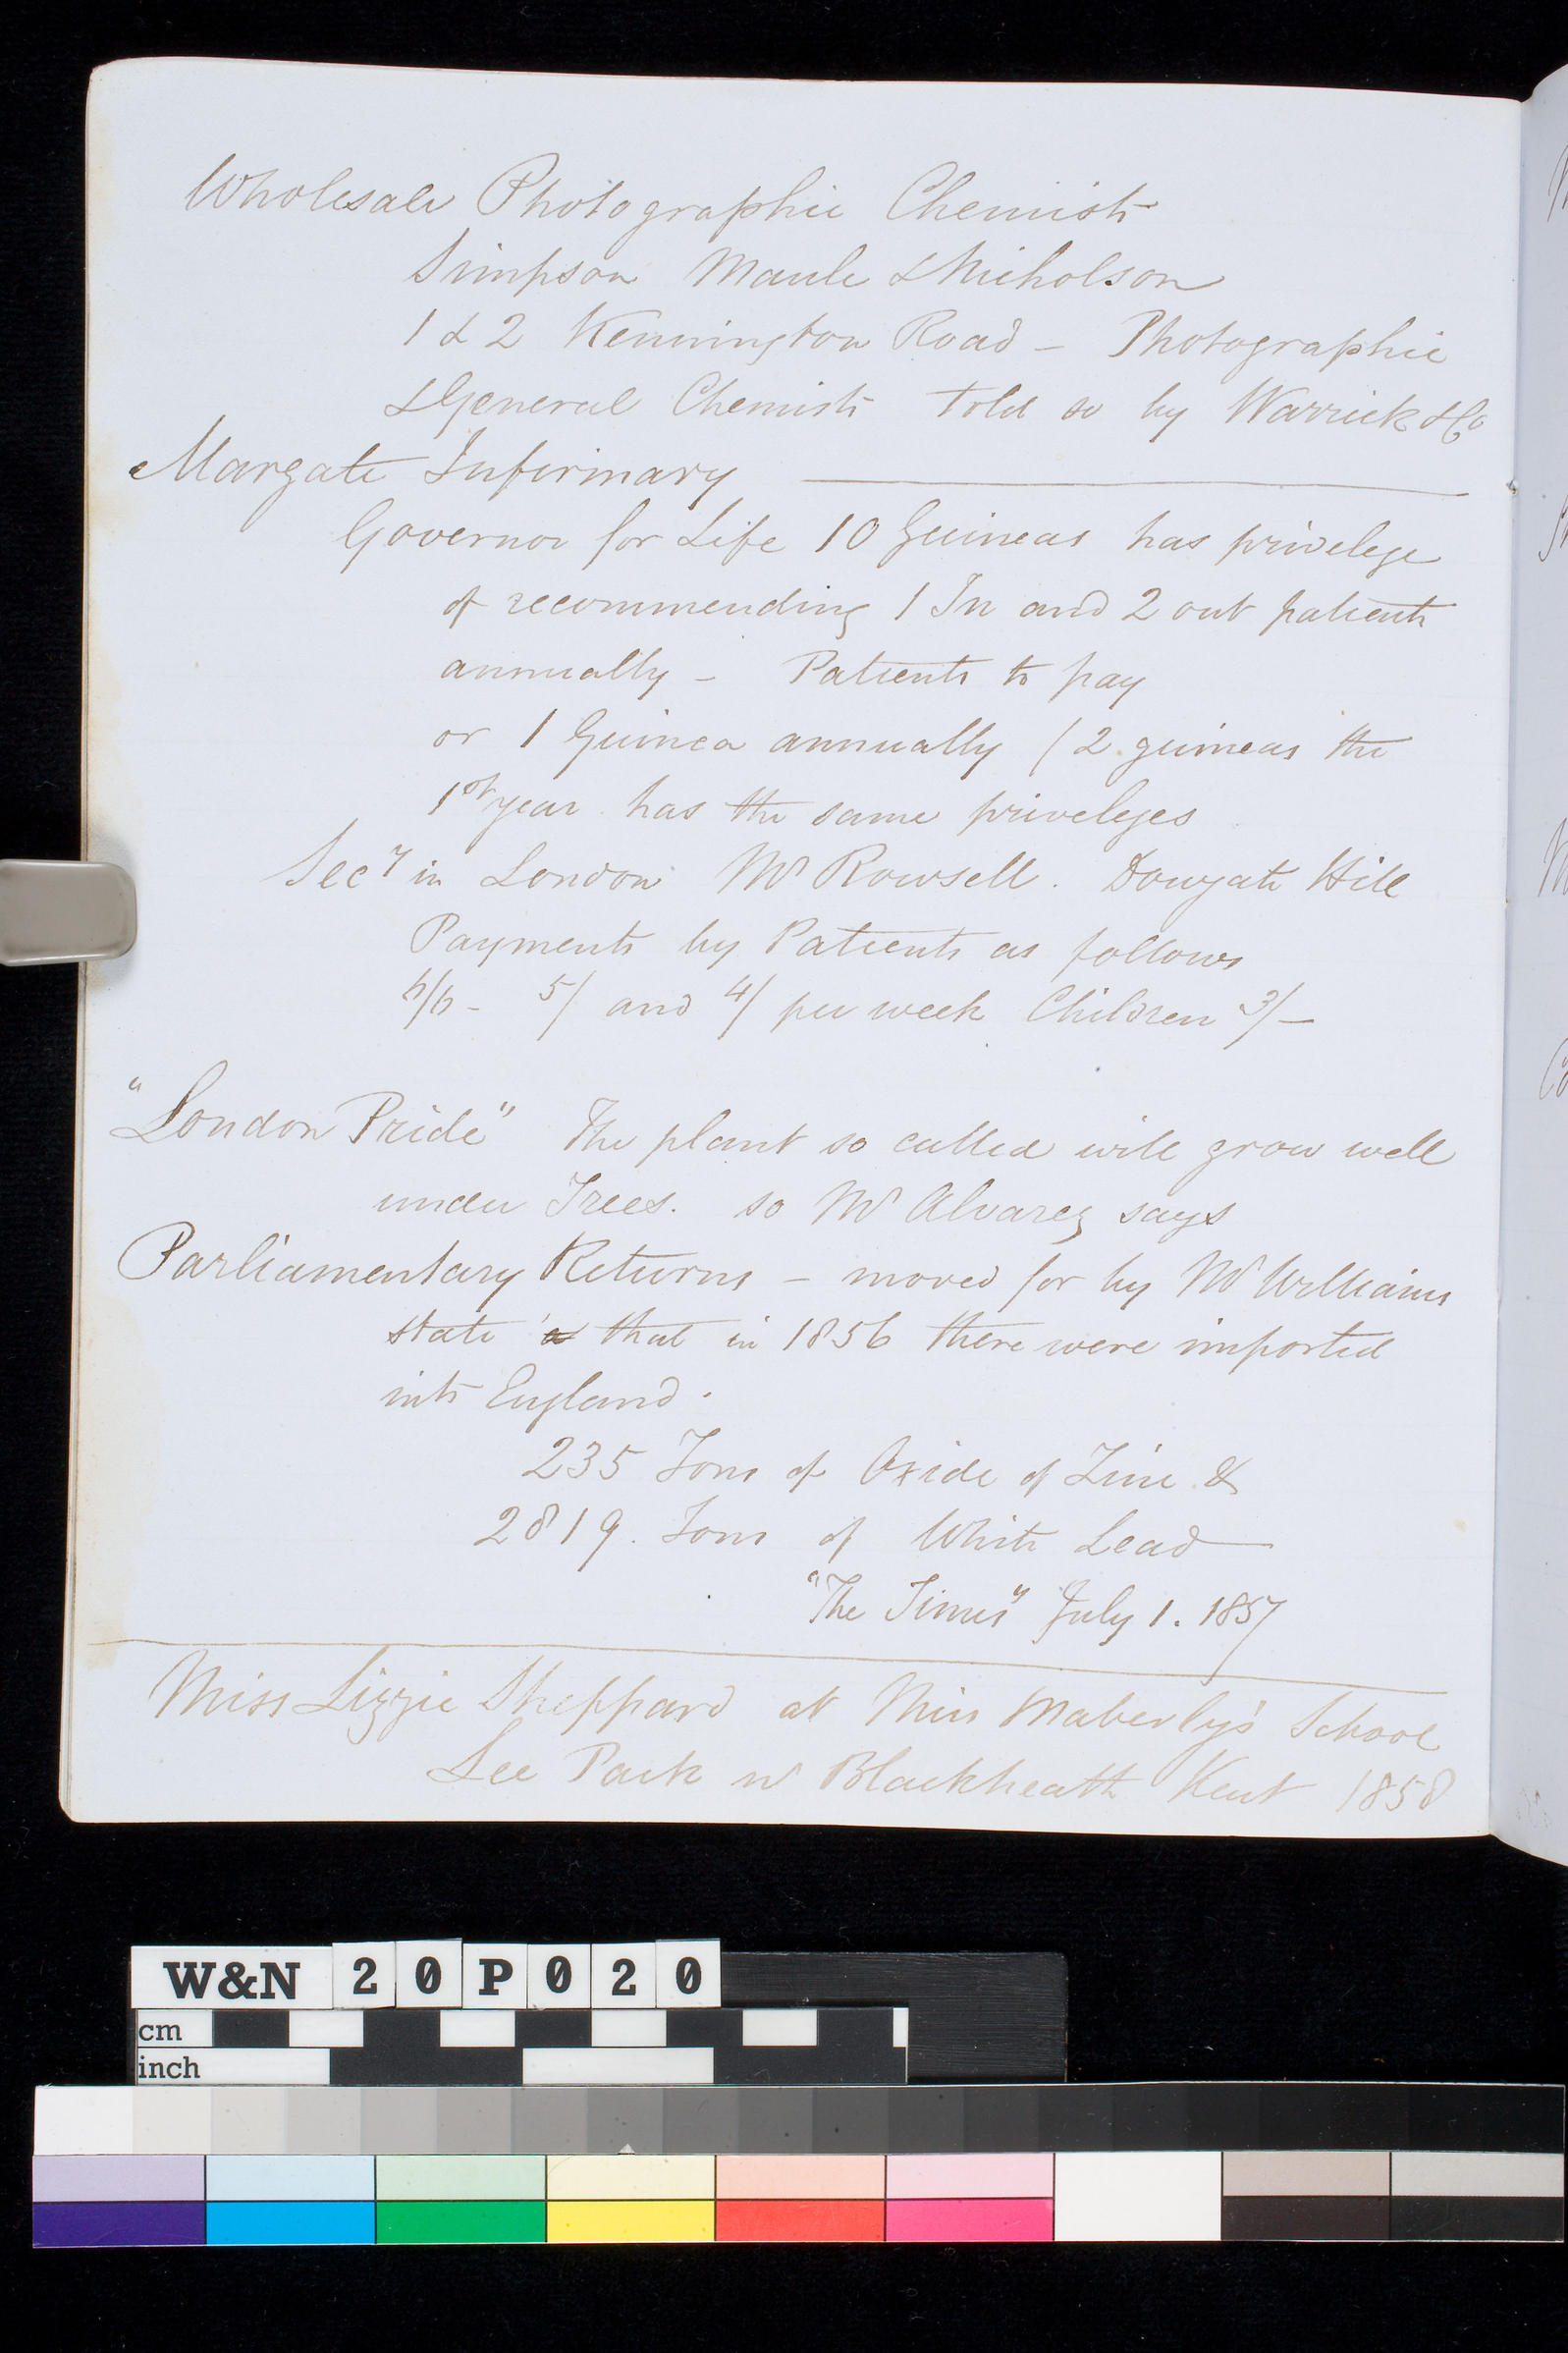 Wholesale Photographic Chemists
Simpson Maule & Nicholson
1 & 2 Kennington Road - Photographic
& General Chemists told so by Warrick & Co
Margate Infirmary
Governor for Life 10 Guineas has privelege
of recommending 1 In and 2 out patients
annually - Patients to pay
or 1 Guinea annually / 2 guineas the
1st year has the same priveleges
Secy in London Mr Rowsell. Dowgate Hill
Payments by Patients as follows
6/6 - 5/ and 4/ per week Children 3/-
"London Pride" The plant so called will grow well
under Trees. so Mr Alvarez says
Parliamentary Returns - moved for by Mr Williams
state that in 1856 there were imported
into England.
235 Tons of Oxide of Zinc &
2819. Tons of White Lead
"The Times" July 1. 1857
Miss Lizzie Sheppard at Miss Maberly's School
Lee Park nr Blackheath Kent 1858
W&N 20P020
cm
inch